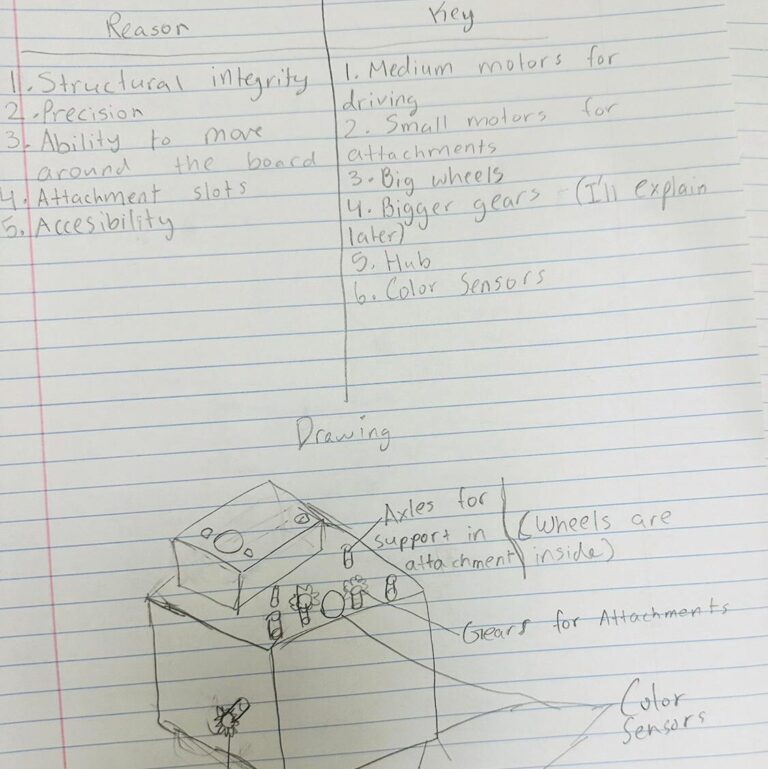 Reason
1. Structural integrity
2. Precision
3. Ability to move
around the board
4. Attachment slots
5. Accesibility
Key
1. Medium motors for
driving
2. Small motors for
attachments
3. Big wheels
4. Bigger gears (I'll explain
later)
5. Hub
6. Color Sensors
Drawing
Axles for
support in
attachment
(Wheels are
inside)
Gears for Attachments
Color
Sensors